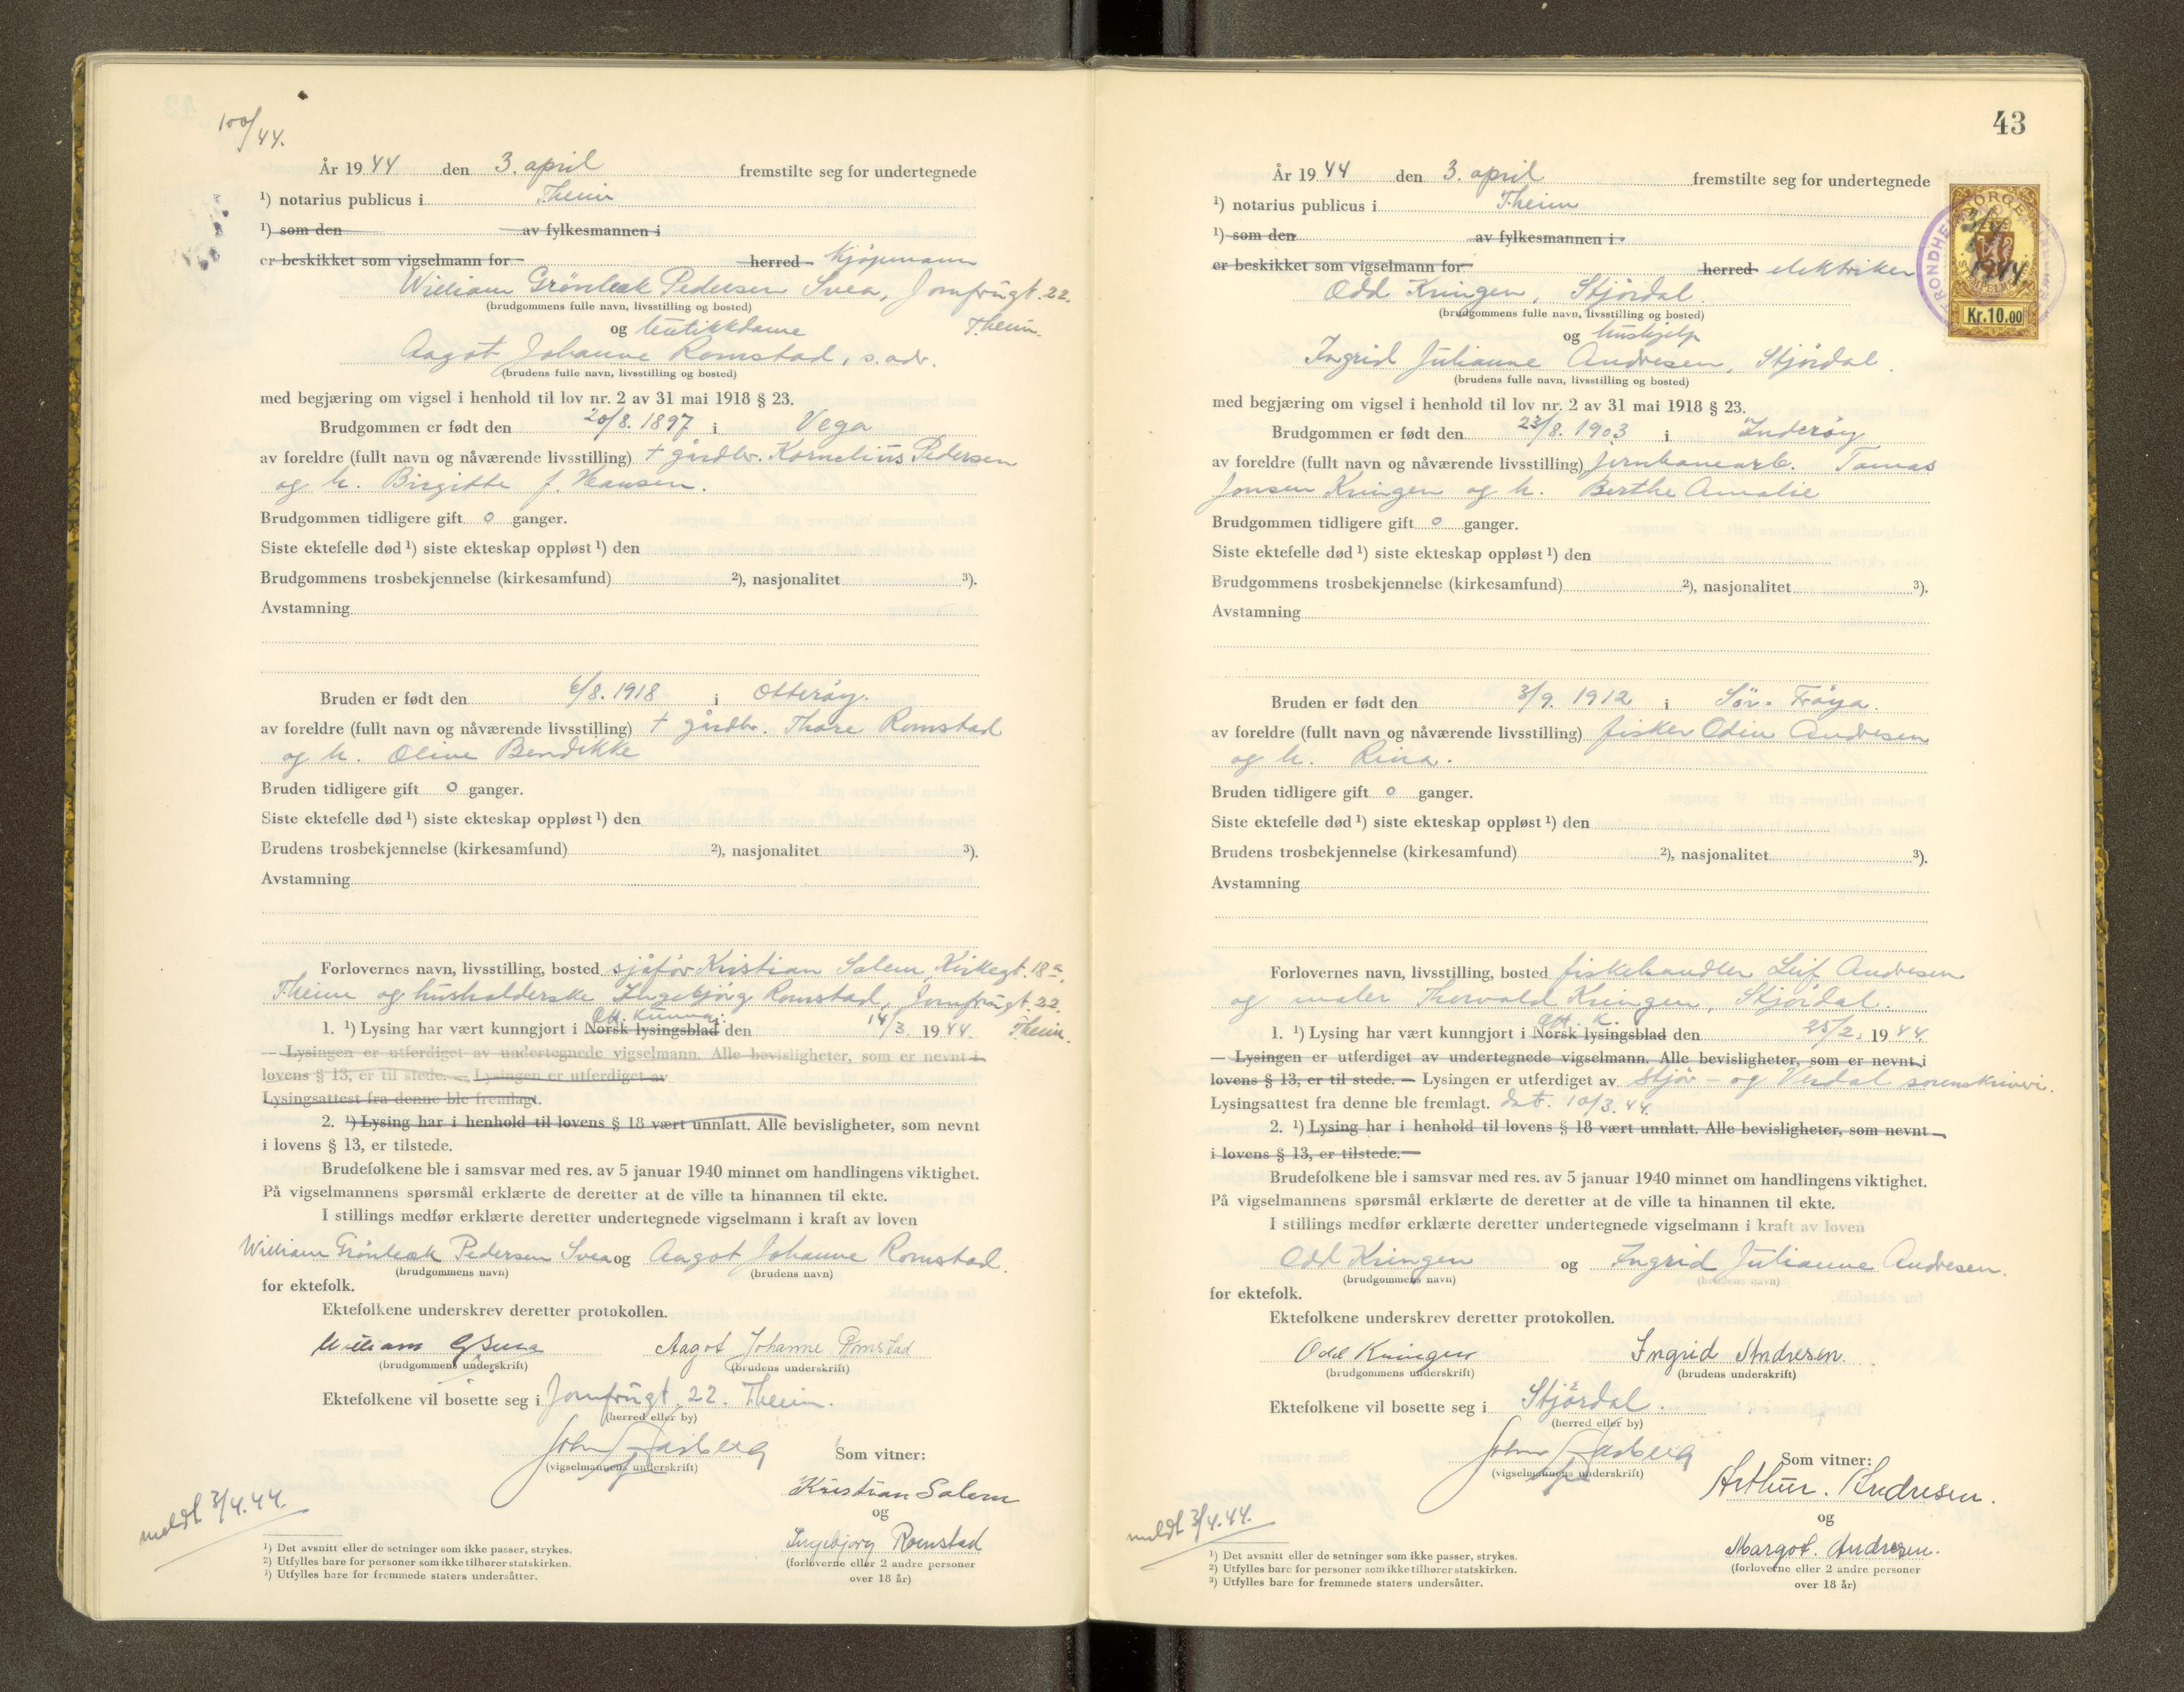 100/44.
År 1944 den 3. april fremstilte seg for undertegnede
¹) notarius publicus i Theim
¹) som den av fylkesmannen i
er beskikket som vigselmann for herred Kjøpmann
William Grönleek Pedersen Svea, Jomfrugt. 22.
(brudgommens fulle navn, livsstilling og bosted)
Theim.
og butikkdame
Aagot Johanne Romstad, s. adr.
(brudens fulle navn, livsstilling og bosted)
med begjæring om vigsel i henhold til lov nr. 2 av 31 mai 1918 § 23.
Brudgommen er født den 20/8. 1897 i Vega
av foreldre (fullt navn og nåværende livsstilling) † gårdbr. Kornelius Pedersen
og h. Birgitte f. Hansen.
Brudgommen tidligere gift 0 ganger.
Siste ektefelle død ¹) siste ekteskap oppløst ¹) den
Brudgommens trosbekjennelse (kirkesamfund) ²), nasjonalitet ³).
Avstamning
Bruden er født den 6/8. 1918 i Otterøy.
av foreldre (fullt navn og nåværende livsstilling) † gårdbr. Thore Romstad
og h. Oline Bendikke
Bruden tidligere gift 0 ganger.
Siste ektefelle død ¹) siste ekteskap oppløst ¹) den
Brudens trosbekjennelse (kirkesamfund) ²), nasjonalitet ³).
Avstamning
Forlovernes navn, livsstilling, bosted sjåfør Kristian Salem, Kirkegt. 18a,
Theim og husholderske Ingebjörg Romstad, Jomfrugt. 22.
Off. kunngj.
1. ¹) Lysing har vært kunngjort i Norsk lysingsblad den 14/3. 1944. Theim.
— Lysingen er utferdiget av undertegnede vigselmann. Alle bevisligheter, som er nevnt i
lovens § 13, er til stede. — Lysingen er utferdiget av
Lysingsattest fra denne ble fremlagt.
2. ¹) Lysing har i henhold til lovens § 18 vært unnlatt. Alle bevisligheter, som nevnt
i lovens § 13, er tilstede.
Brudefolkene ble i samsvar med res. av 5 januar 1940 minnet om handlingens viktighet.
På vigselmannens spørsmål erklærte de deretter at de ville ta hinannen til ekte.
I stillings medfør erklærte deretter undertegnede vigselmann i kraft av loven
William Grönleek Pedersen Svea og Aagot Johanne Romstad.
(brudgommens navn) (brudens navn)
for ektefolk.
Ektefolkene underskrev deretter protokollen.
William G Svea Aagot Johanne Romstad
(brudgommens underskrift) (brudens underskrift)
Ektefolkene vil bosette seg i Jomfrugt. 22. Theim.
(herred eller by)
John Aasberg
(vigselmannens underskrift)
Som vitner:
Kristian Salem
og
Ingebjørg Romstad
(forloverne eller 2 andre personer
over 18 år)
meldt 3/4.44.
¹) Det avsnitt eller de setninger som ikke passer, strykes.
²) Utfylles bare for personer som ikke tilhører statskirken.
³) Utfylles bare for fremmede staters undersåtter.
43
År 1944 den 3. april fremstilte seg for undertegnede
¹) notarius publicus i Theim
¹) som den av fylkesmannen i
er beskikket som vigselmann for herred elektriker
Odd Kringen, Stjördal.
(brudgommens fulle navn, livsstilling og bosted)
og hushjelp
Ingrid Julianne Andresen, Stjördal.
(brudens fulle navn, livsstilling og bosted)
NORGE
3/4
1944
Kr.10.00
med begjæring om vigsel i henhold til lov nr. 2 av 31 mai 1918 § 23.
Brudgommen er født den 23/8. 1903 i Inderöy
av foreldre (fullt navn og nåværende livsstilling) Jernbanearb. Tomas
Jonsen Kringen og h. Berthe Amalie
Brudgommen tidligere gift 0 ganger.
Siste ektefelle død ¹) siste ekteskap oppløst ¹) den
Brudgommens trosbekjennelse (kirkesamfund) ²), nasjonalitet ³).
Avstamning
Bruden er født den 3/9. 1912 i Sör-Fröya.
av foreldre (fullt navn og nåværende livsstilling) fisker Odin Andresen
og h. Rina.
Bruden tidligere gift 0 ganger.
Siste ektefelle død ¹) siste ekteskap oppløst ¹) den
Brudens trosbekjennelse (kirkesamfund) ²), nasjonalitet ³).
Avstamning
Forlovernes navn, livsstilling, bosted fiskehandler Leif Andresen
og maler Thorvald Kringen, Stjördal.
Off. K.
1. ¹) Lysing har vært kunngjort i Norsk lysingsblad den 25/2. 1944.
— Lysingen er utferdiget av undertegnede vigselmann. Alle bevisligheter, som er nevnt i
lovens § 13, er til stede. — Lysingen er utferdiget av Stjör- og Verdal sorenskriveri.
Lysingsattest fra denne ble fremlagt. dat. 10/3.44.
2. ¹) Lysing har i henhold til lovens § 18 vært unnlatt. Alle bevisligheter, som nevnt
i lovens § 13, er tilstede.
Brudefolkene ble i samsvar med res. av 5 januar 1940 minnet om handlingens viktighet.
På vigselmannens spørsmål erklærte de deretter at de ville ta hinannen til ekte.
I stillings medfør erklærte deretter undertegnede vigselmann i kraft av loven
Odd Kringen og Ingrid Julianne Andresen.
(brudgommens navn) (brudens navn)
for ektefolk.
Ektefolkene underskrev deretter protokollen.
Odd Kringen Ingrid Andresen.
(brudgommens underskrift) (brudens underskrift)
Ektefolkene vil bosette seg i Stjördal.
(herred eller by)
John Aasberg
(vigselmannens underskrift)
Som vitner:
Arthur. Andresen.
og
Margot. Andresen.
(forloverne eller 2 andre personer
over 18 år)
meldt 3/4.44.
¹) Det avsnitt eller de setninger som ikke passer, strykes.
²) Utfylles bare for personer som ikke tilhører statskirken.
³) Utfylles bare for fremmede staters undersåtter.